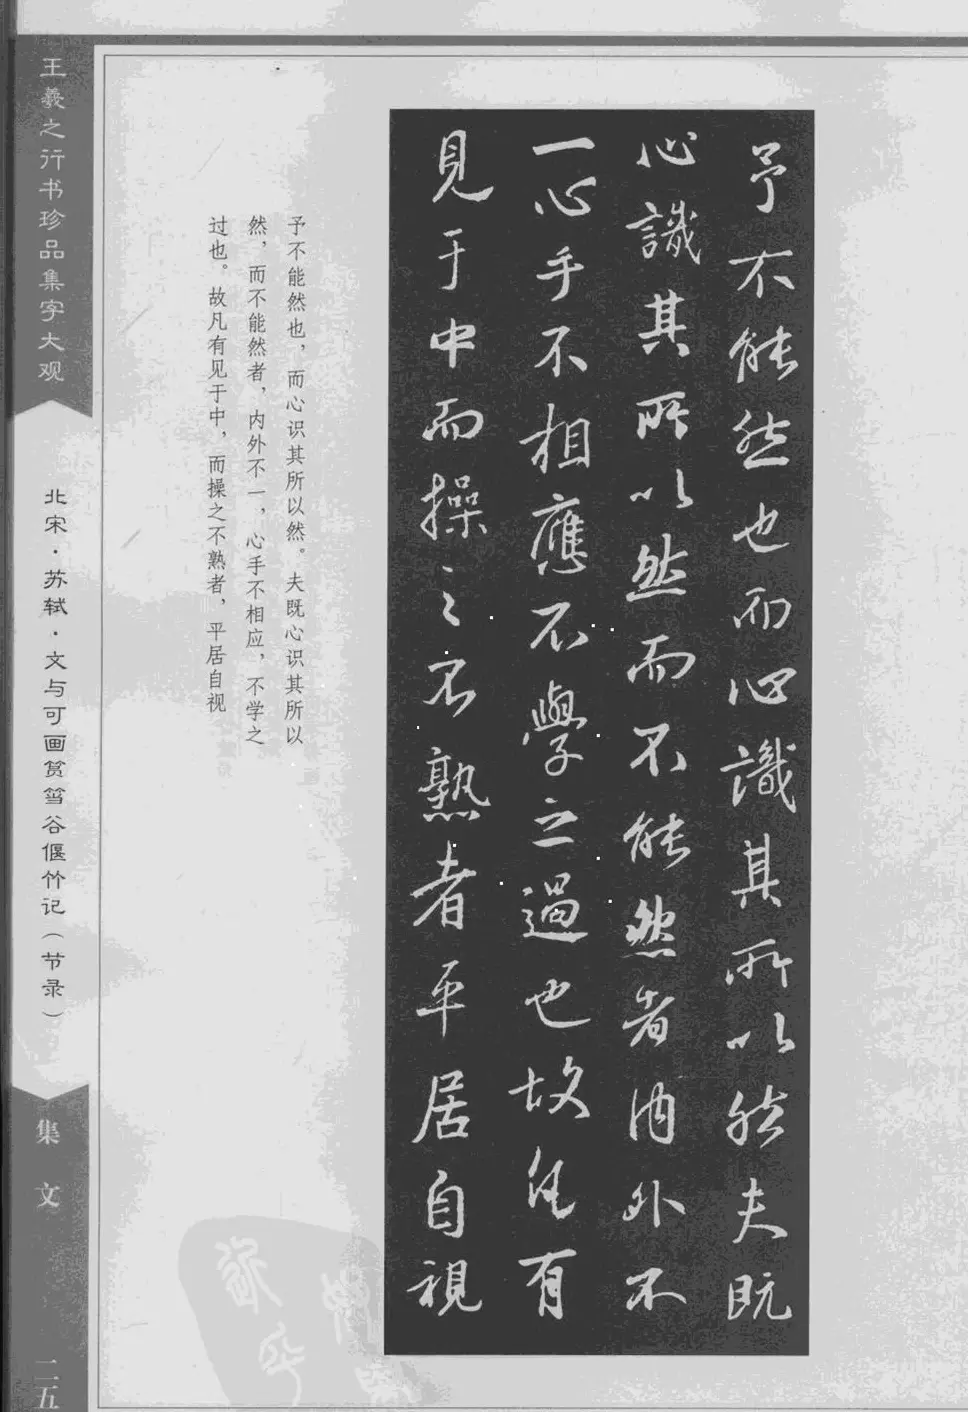 予不能然也而心識其所以然夫既
心識其所以然而不能然者内外不
一心手不相應不學之過也故凡有
見于中而操之不熟者平居自視
予不能然也，而心识其所以然。夫既心识其所以
然，而不能然者，内外不一，心手不相应，不学之
过也。故凡有见于中，而操之不熟者，平居自视
王羲之行书珍品集字大观
北宋·苏轼·文与可画筼筜谷偃竹记（节录）
集文
二五